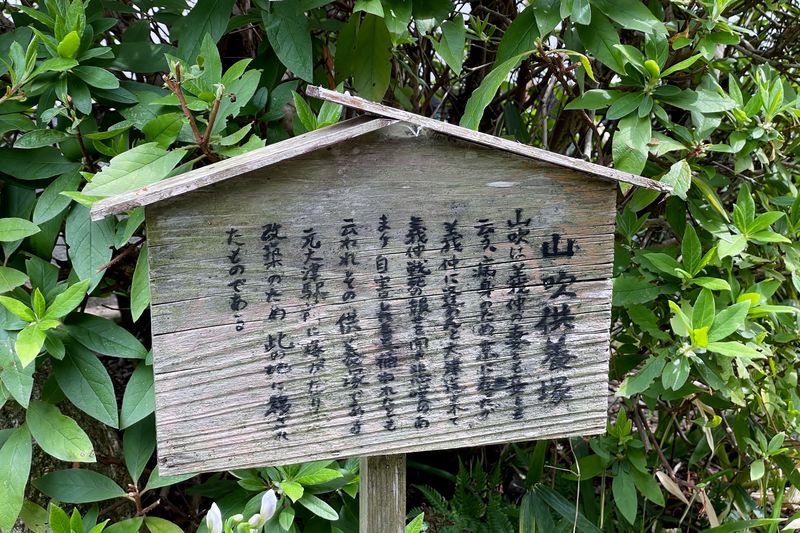 山吹供養塚
山吹は義仲の妻そも妾とも
云う、病身のため京に在りしが
義仲に逢わんと大津迄来て
義仲戦死の報を聞き悲嘆のあ
まり自害したとも捕われたとも
云われその供養塚であるが
元大津駅に塚がたり
改築のため此の地に移され
たものである